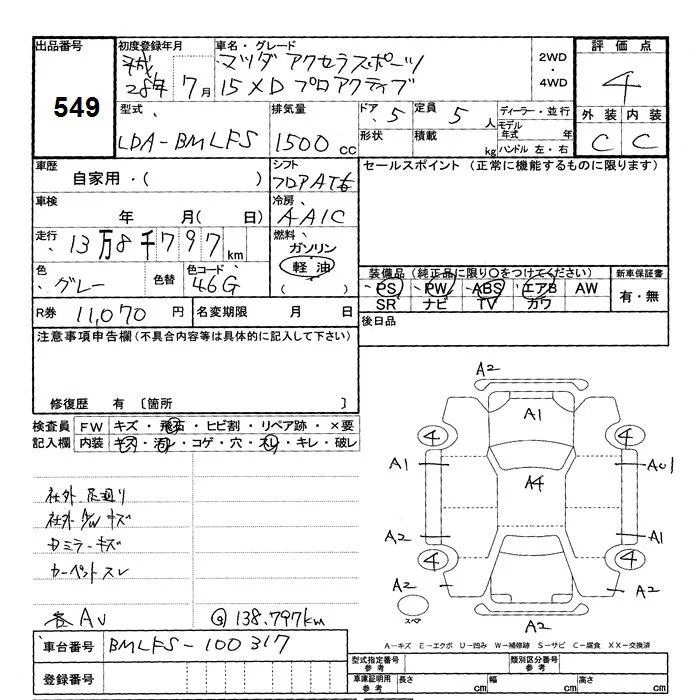 出品番号 初度登録年月 車名・グレード 2WD・4WD 評価点
549
平成28年7月 マツダ アクセラスポーツ
15XD プロアクティブ
4
型式 排気量 ドア 5 定員 5人 ディーラー・並行
モデル年式 年
外装 内装
LDA-BMLFS 1500cc 形状 積載 kg ハンドル 左・右 C C
車歴 シフト セールスポイント (正常に機能するものに限ります)
自家用・( ) フロアAT
車検 冷房
年 月( 日) AAIC
走行 燃料
13万8千797km ガソリン
色 色替 色コード 軽油
グレー 46G ( )
装備品 (純正品に限り○をつけてください) 新車保証書
PS PW ABS エアB AW 有・無
SR ナビ TV カワ
R券 11,070円 名変期限 月 日
後日品
注意事項申告欄(不具合内容等は具体的に記入して下さい)
修復歴 有 〔箇所 〕
検査員 FW キズ・飛石・ヒビ割・リペア跡・×要
記入欄 内装 キズ・汚レ・コゲ・穴・スレ・キレ・破レ
A2
A1
4 4
A1 A4
A2 A1
4 4
A2 A2
A2
スペア
社外 足廻り
社外 A/W キズ
カーペット スレ
AV 138.797km
A-キズ E-エクボ U-凹み W-補修跡 S-サビ C-腐食 XX-交換済
車台番号 BMLFS-100317
登録番号
型式指定番号 参考 類別区分番号 参考
車庫証明用 参考 長さ cm 幅 cm 高さ cm